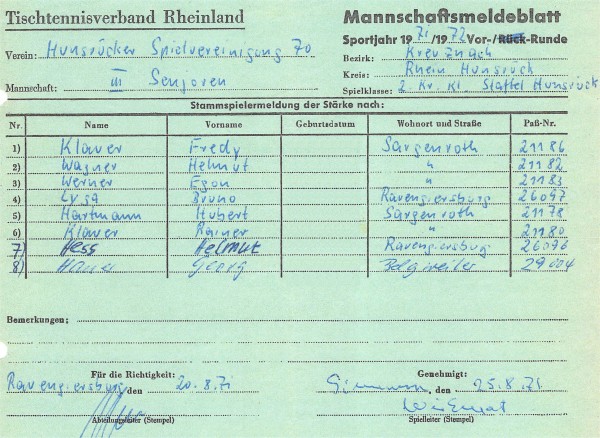 Tischtennisverband Rheinland
Mannschaftsmeldeblatt
Sportjahr 1971/1972 Vor-/Rück-Runde
Verein: Hunsrücker Spielvereinigung 70
Bezirk: Kreuznach
Kreis: Rhein Hunsrück
Mannschaft: III Senjoren
Spielklasse: 2. Kr. Kl. Staffel Hunsrück
Stammspielermeldung der Stärke nach:
Nr. Name Vorname Geburtsdatum Wohnort und Straße Paß-Nr.
1) Klauer Fredy Sargenroth 21186
2) Wagner Helmut " 21182
3) Werner Egon " 21183
4) Bruno Ravengiersburg 26097
5) Hartmann Hubert Sargenroth 21178
6) Klauer Rainer " 21180
7) Hess Helmut Ravengiersburg 26096
8) Georg Belgweiler 29004
Bemerkungen:
Für die Richtigkeit: Genehmigt:
Ravengiersburg, den 20.8.71 Simmern, den 25.8.71
Abteilungsleiter (Stempel) Spielleiter (Stempel)